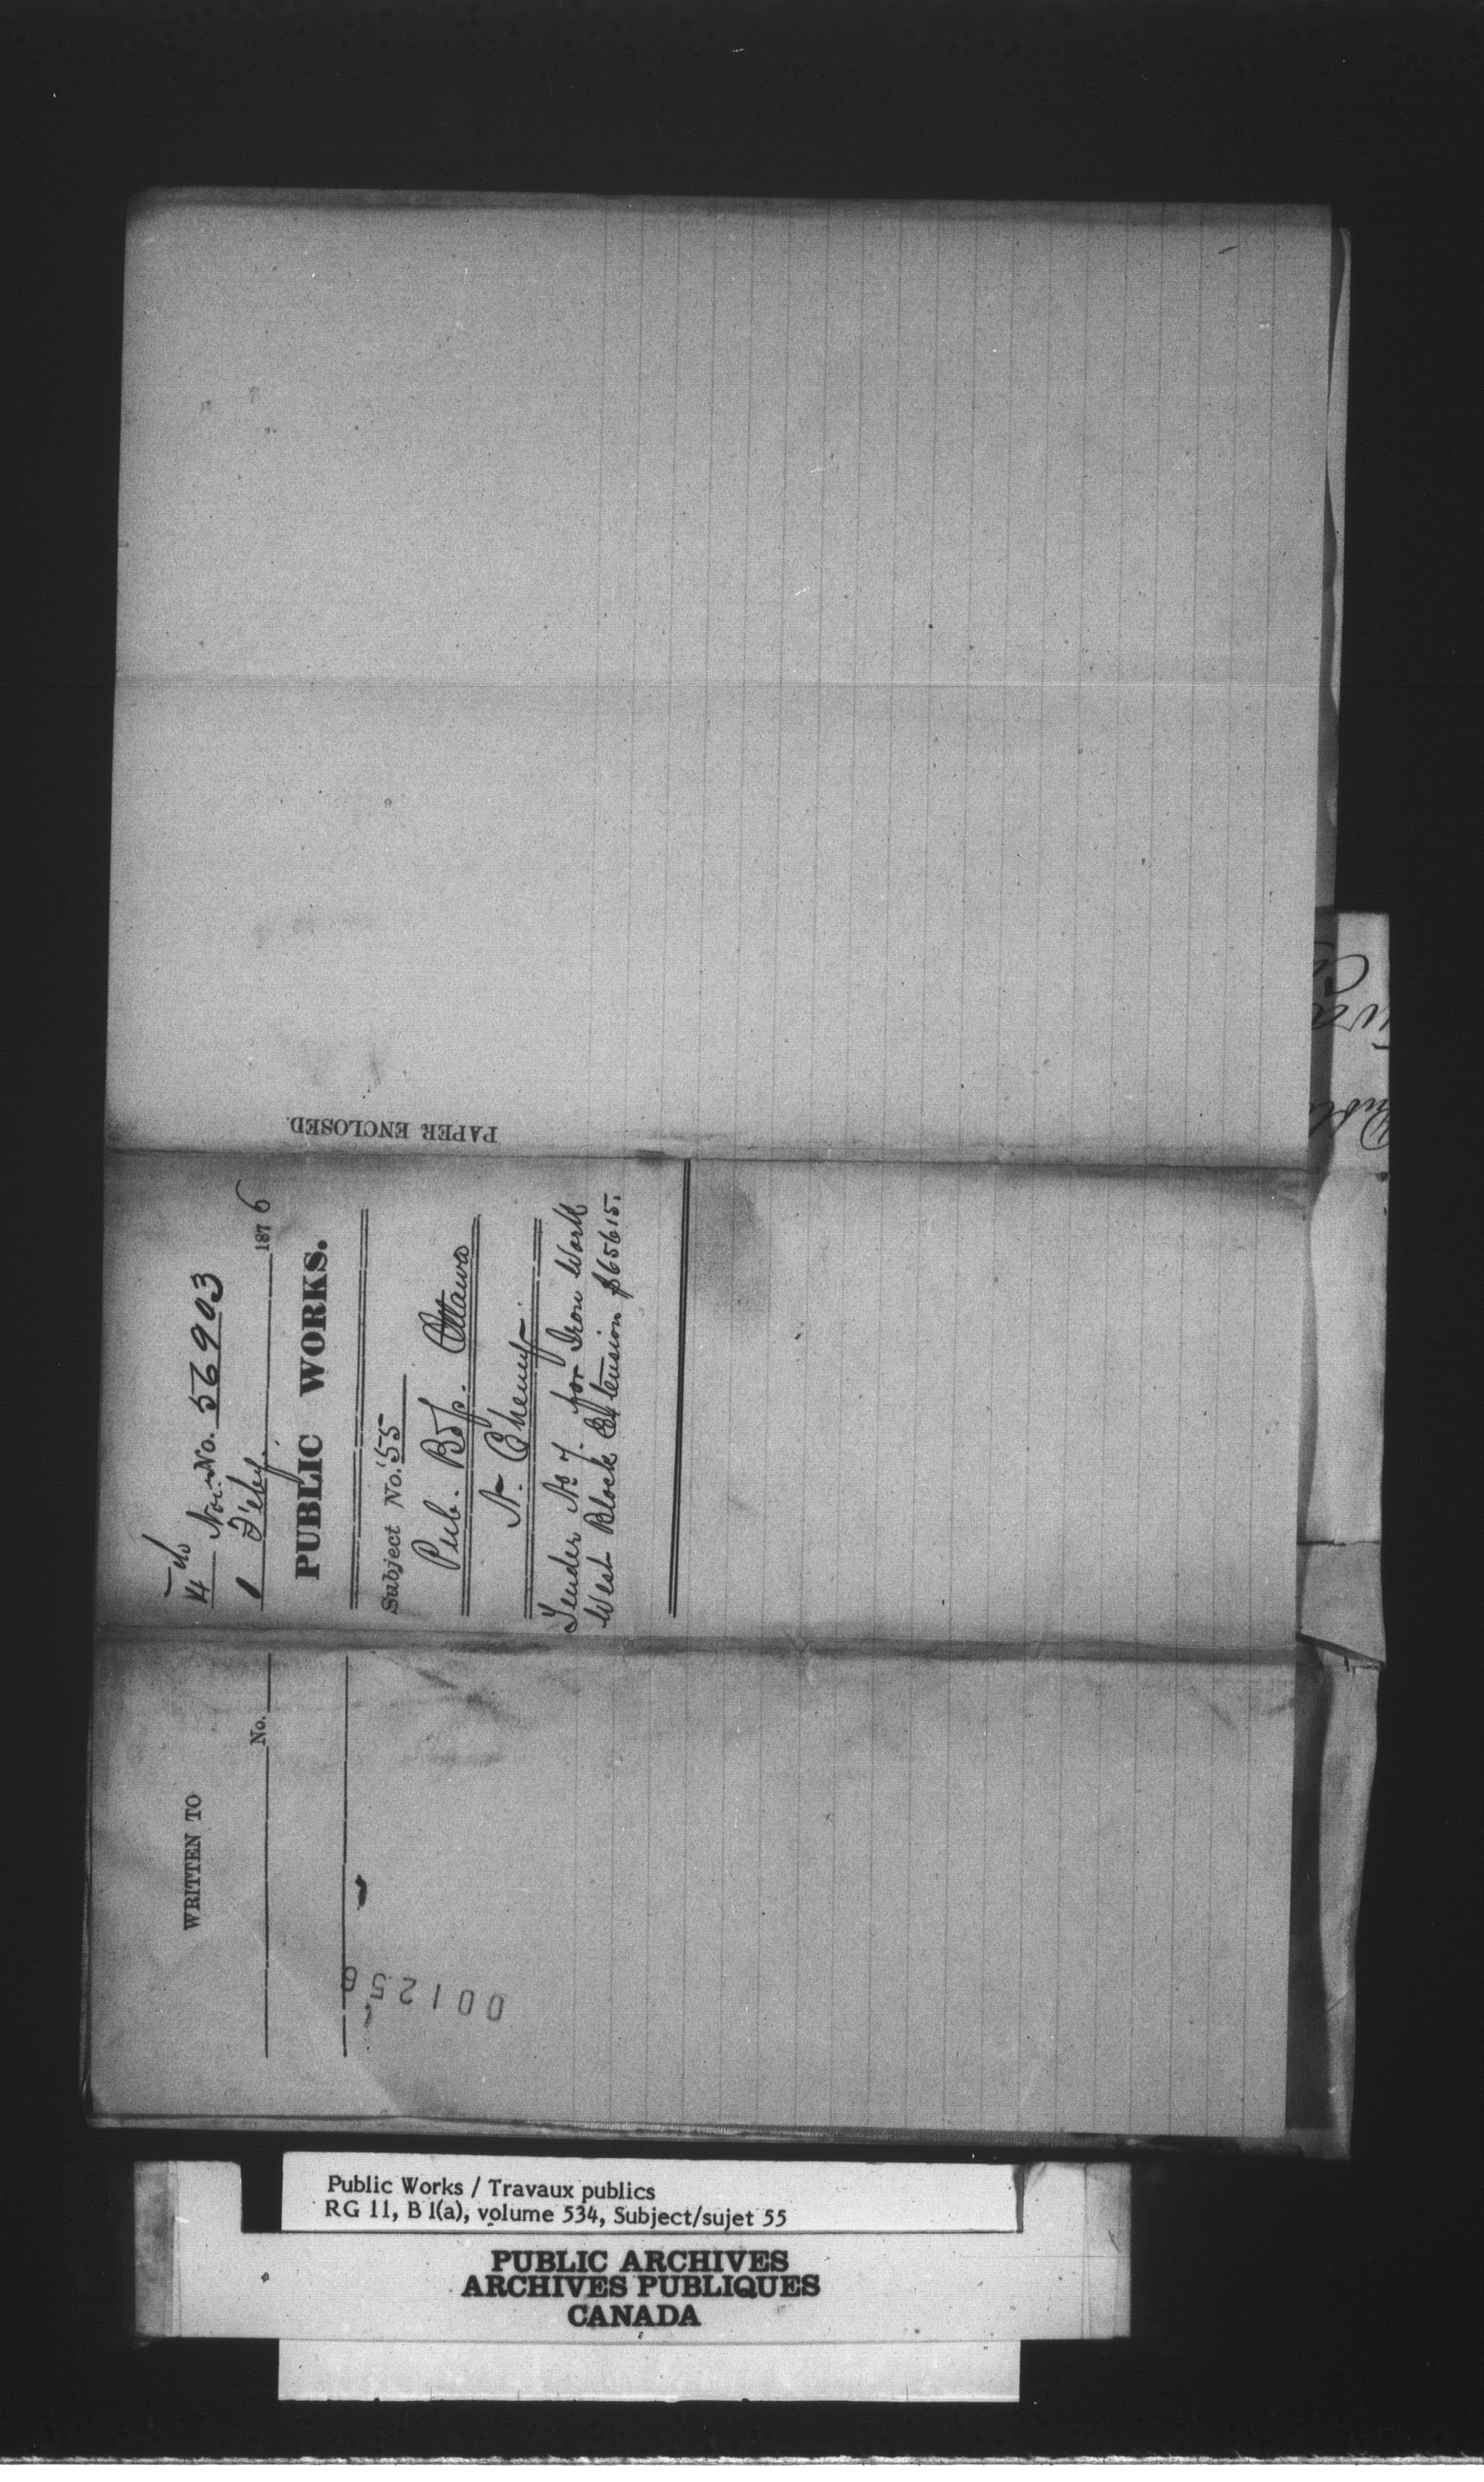 PAPER ENCLOSED.
No. 56903
1 Feby. 1876
PUBLIC WORKS.
Subject No. 55
Pub. Bdgs. Ottawa
N. Cheney
Tender No 7. for Iron Work
West Block Extension $65615.
WRITTEN TO
No.
Public Works / Travaux publics
RG 11, B 1(a), volume 534, Subject/sujet 55
PUBLIC ARCHIVES
ARCHIVES PUBLIQUES
CANADA